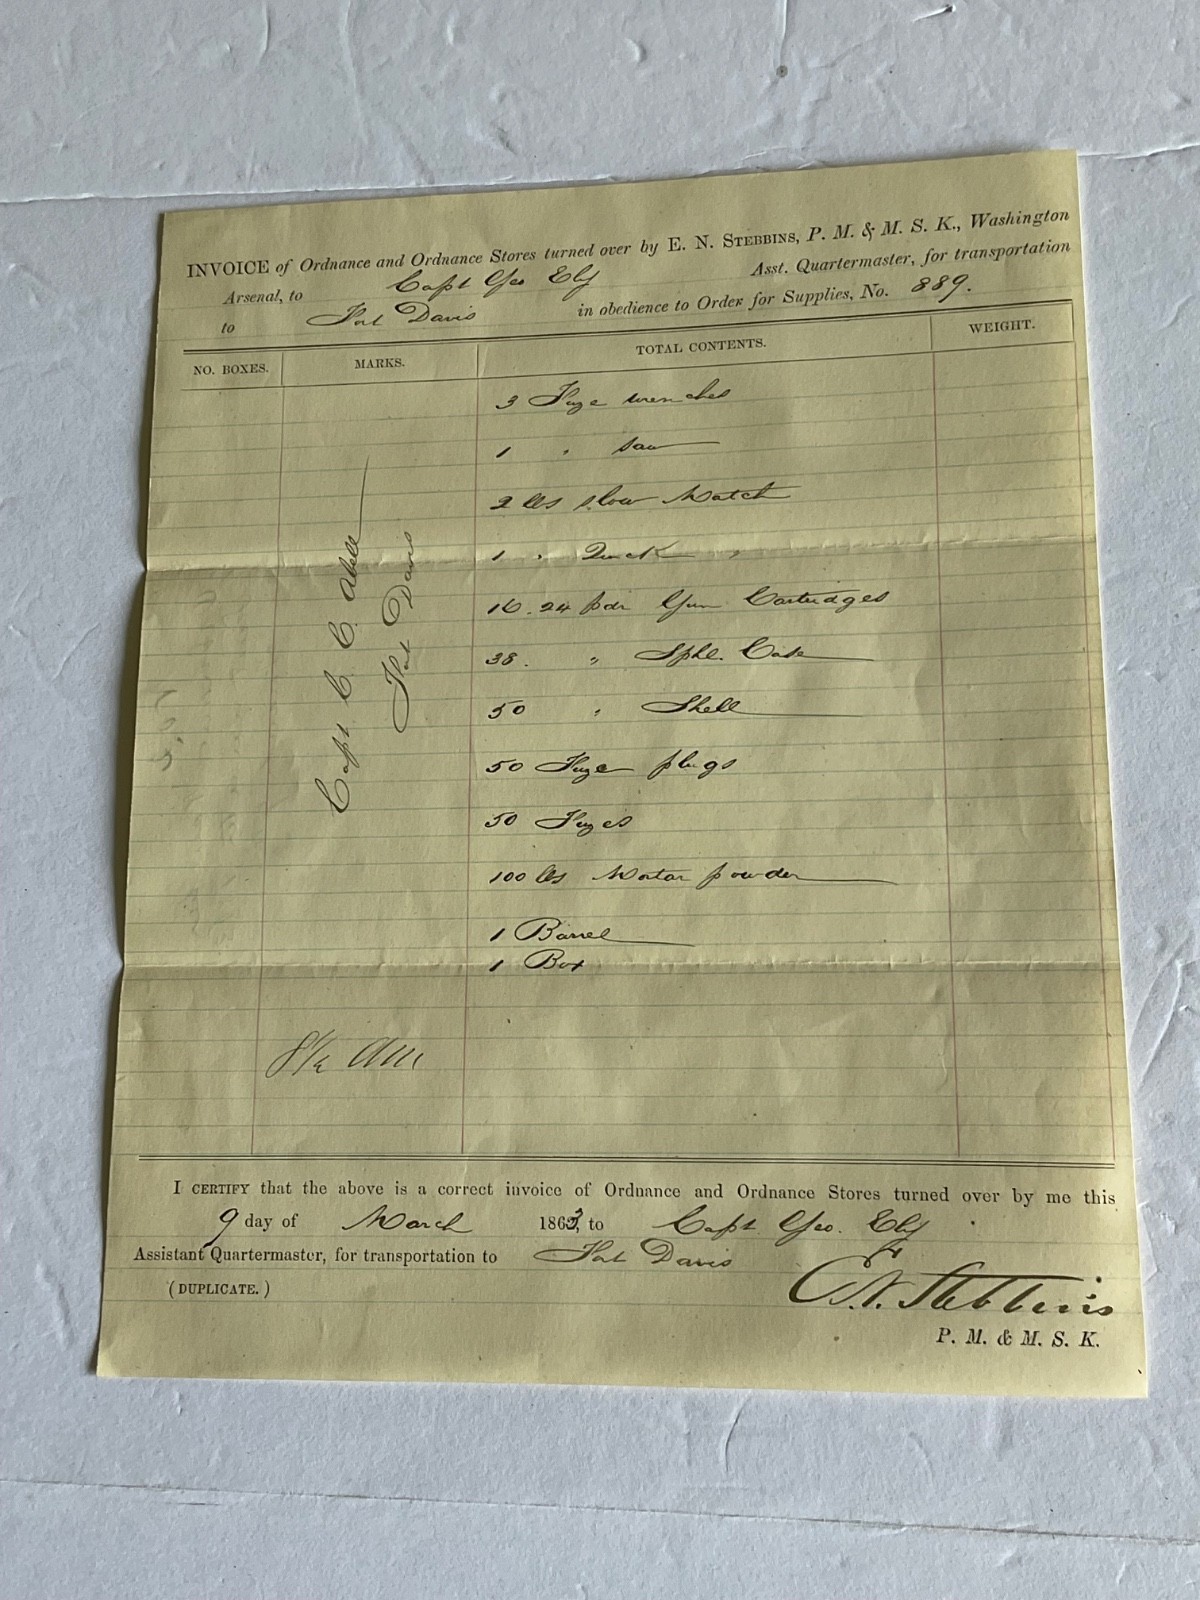 INVOICE of Ordnance and Ordnance Stores turned over by E. N. STEBBINS, P. M. & M. S. K., Washington
Arsenal, to Capt Geo Ely Asst. Quartermaster, for transportation
to Fort Davis in obedience to Order for Supplies, No. 889.
NO. BOXES. MARKS. TOTAL CONTENTS. WEIGHT.
Capt C. C. Abell
Fort Davis
3 Fuze wrenches
1 " saw
2 lbs slow Match
1 " Quick "
16. 24 pdr Gun Cartridges
38. " Sphl. Case
50 " Shell
50 Fuze plugs
50 Fuzes
100 lbs Mortar powder
1 Barrel
1 Box
I CERTIFY that the above is a correct invoice of Ordnance and Ordnance Stores turned over by me this
9 day of March 1863, to Capt Geo. Ely
Assistant Quartermaster, for transportation to Fort Davis
(DUPLICATE.)
E. N. Stebbins
P. M. & M. S. K.